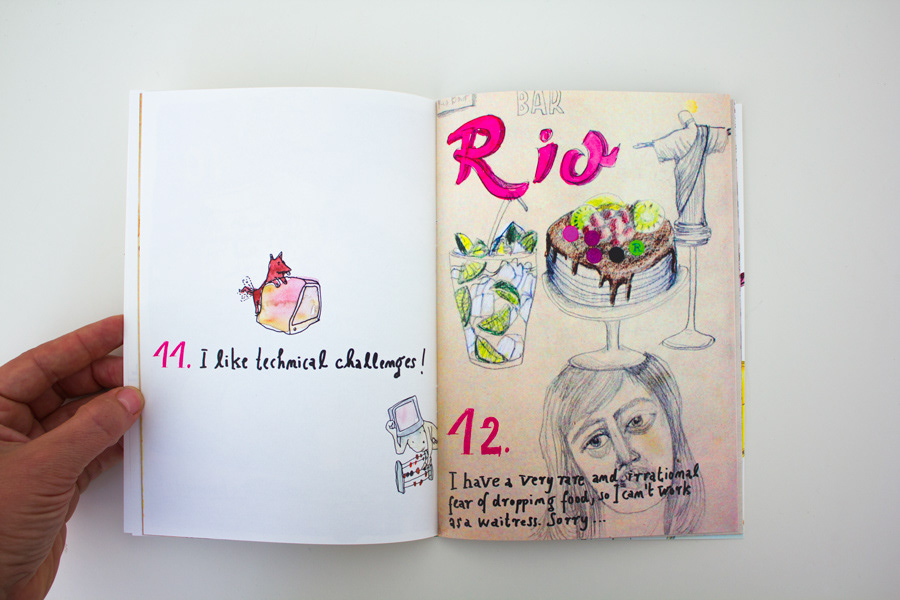 11. I like technical challenges!
BAR
Rio
12.
I have a very rare and irrational
fear of dropping food, so I can't work
as a waitress. Sorry...